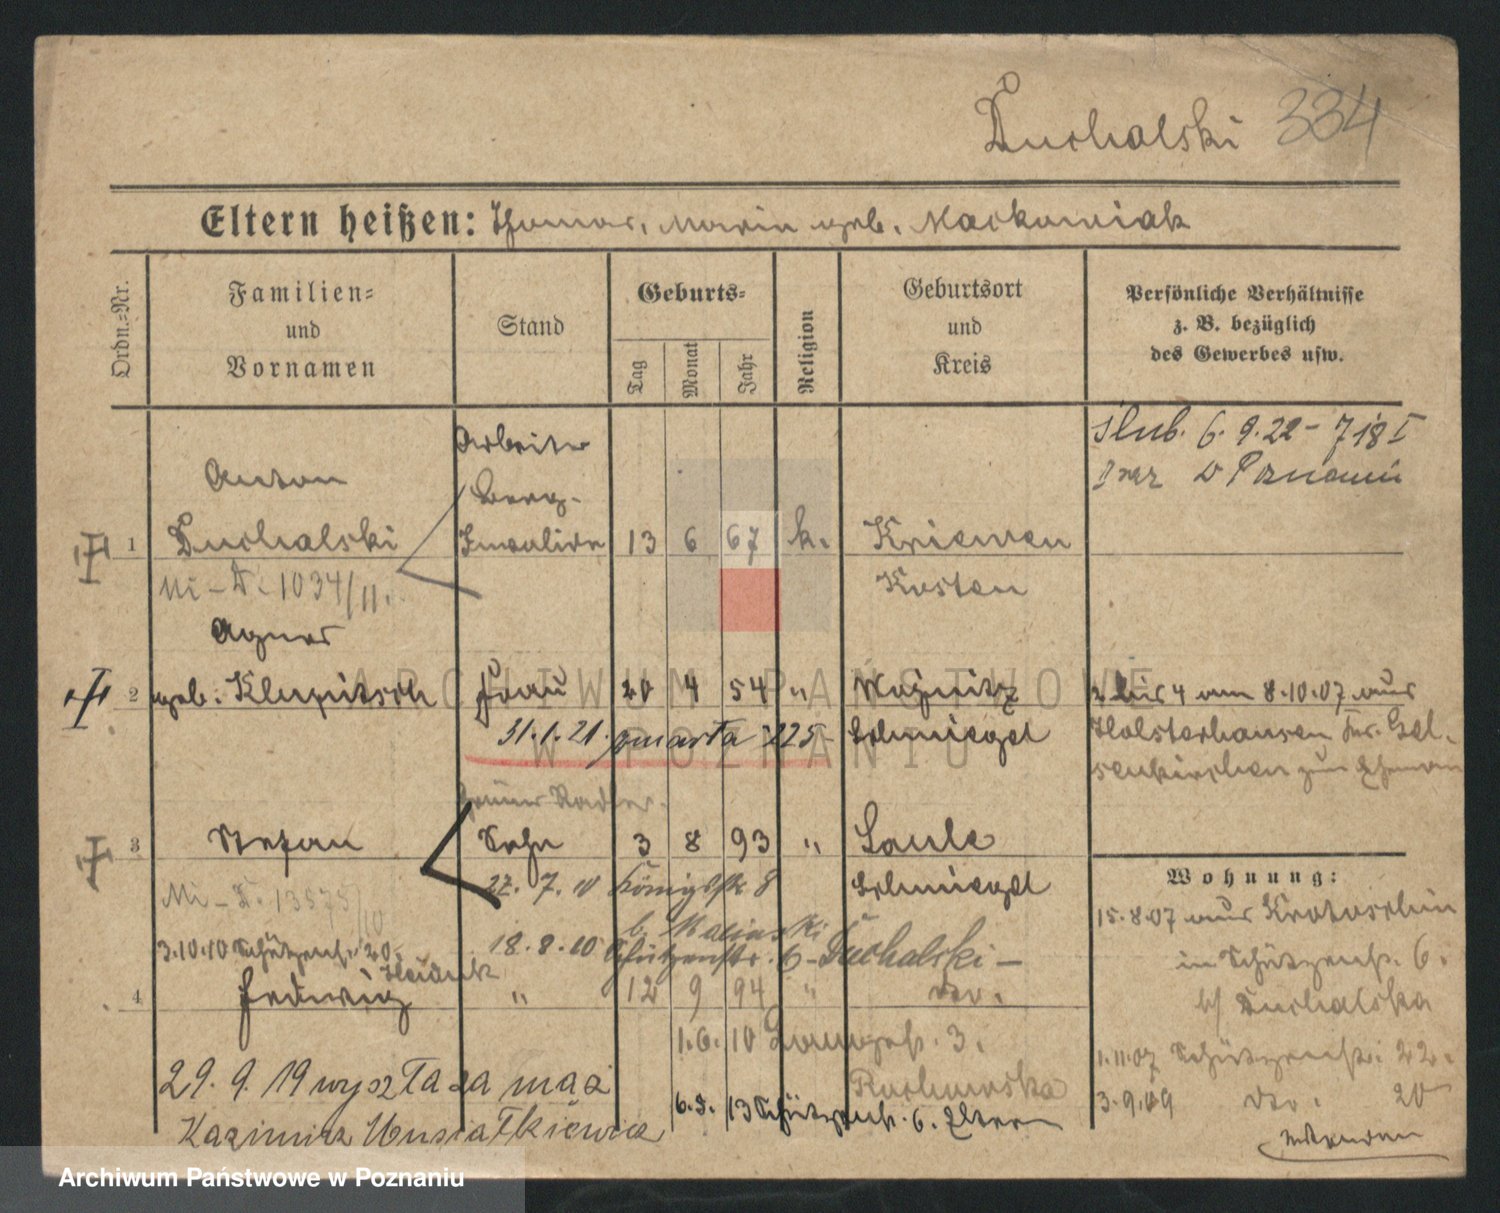 Duchalski 334
Eltern heißen: Thomas, Maria geb. Maćkowiak
Ordn.=Nr.
Familien=
und
Vornamen
Stand
Geburts=
Tag
Monat
Jahr
Religion
Geburtsort
und
Kreis
Persönliche Verhältnisse
z. B. bezüglich
des Gewerbes usw.
Arbeiter
Anton
Berg-
1 Duchalski Invalide 13 6 67 k. Kriewen
Kosten
Mi-D. 1034/11.
ślub. 6.9.22 - 718 I
w Poznaniu
Agnes
2 geb. Klupitsch Frau 20 4 54 " Woynitz
31.1.21. zmarła 225 Schmiegel
2 bis 4 am 8.10.07 aus
Holsterhausen Kr. Gel-
senkirchen zum Ehemann
3 Stefan Sohn 3 8 93 " Laule
27. 7. 10 Königstr. 8 Schmiegel
Mi-D. 13575/10
3.10.10 Schützenstr. 20.
18.8.10 Schützenstr. 6 - Duchalski -
4 Hedwig " 12 9 94 " do.
1.6.10 Langestr. 3.
Ruchowska
6.5.13 Schützenstr. 6. Eltern
29. 9. 19 wyszła za mąż
Kazimierz
Wohnung:
15.8.07 aus Krotoschin
in Schützenstr. 6.
b/ Duchalska
1.11.07 Schützenstr. 22.
3.9.09 do. 20
ARCHIWUM PAŃSTWOWE
W POZNANIU
Archiwum Państwowe w Poznaniu